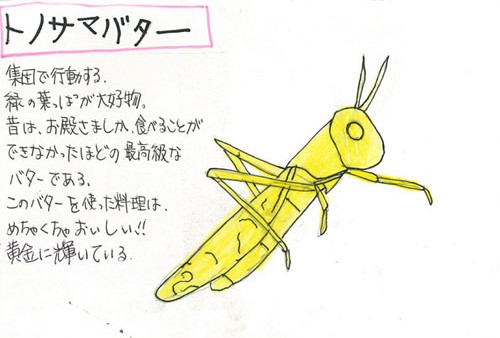 トノサマバター
集団で行動する.
緑の葉っぱが大好物。
昔は、お殿さましか、食べることが
できなかったほどの最高級な
バターである.
このバターを使った料理は、
めちゃくちゃおいしい!!
黄金に輝いている.